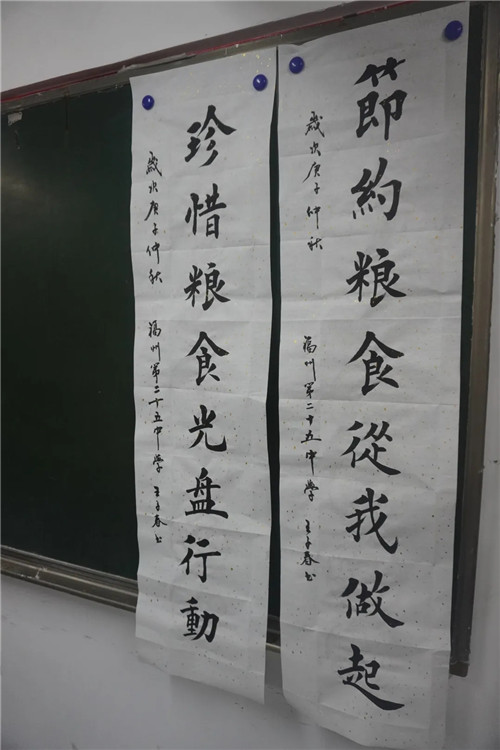 節約粮食從我做起
歲次庚子仲秋 福州第二十五中学 王子春书
珍惜粮食光盘行動
歲次庚子仲秋 福州第二十五中学 王子春书